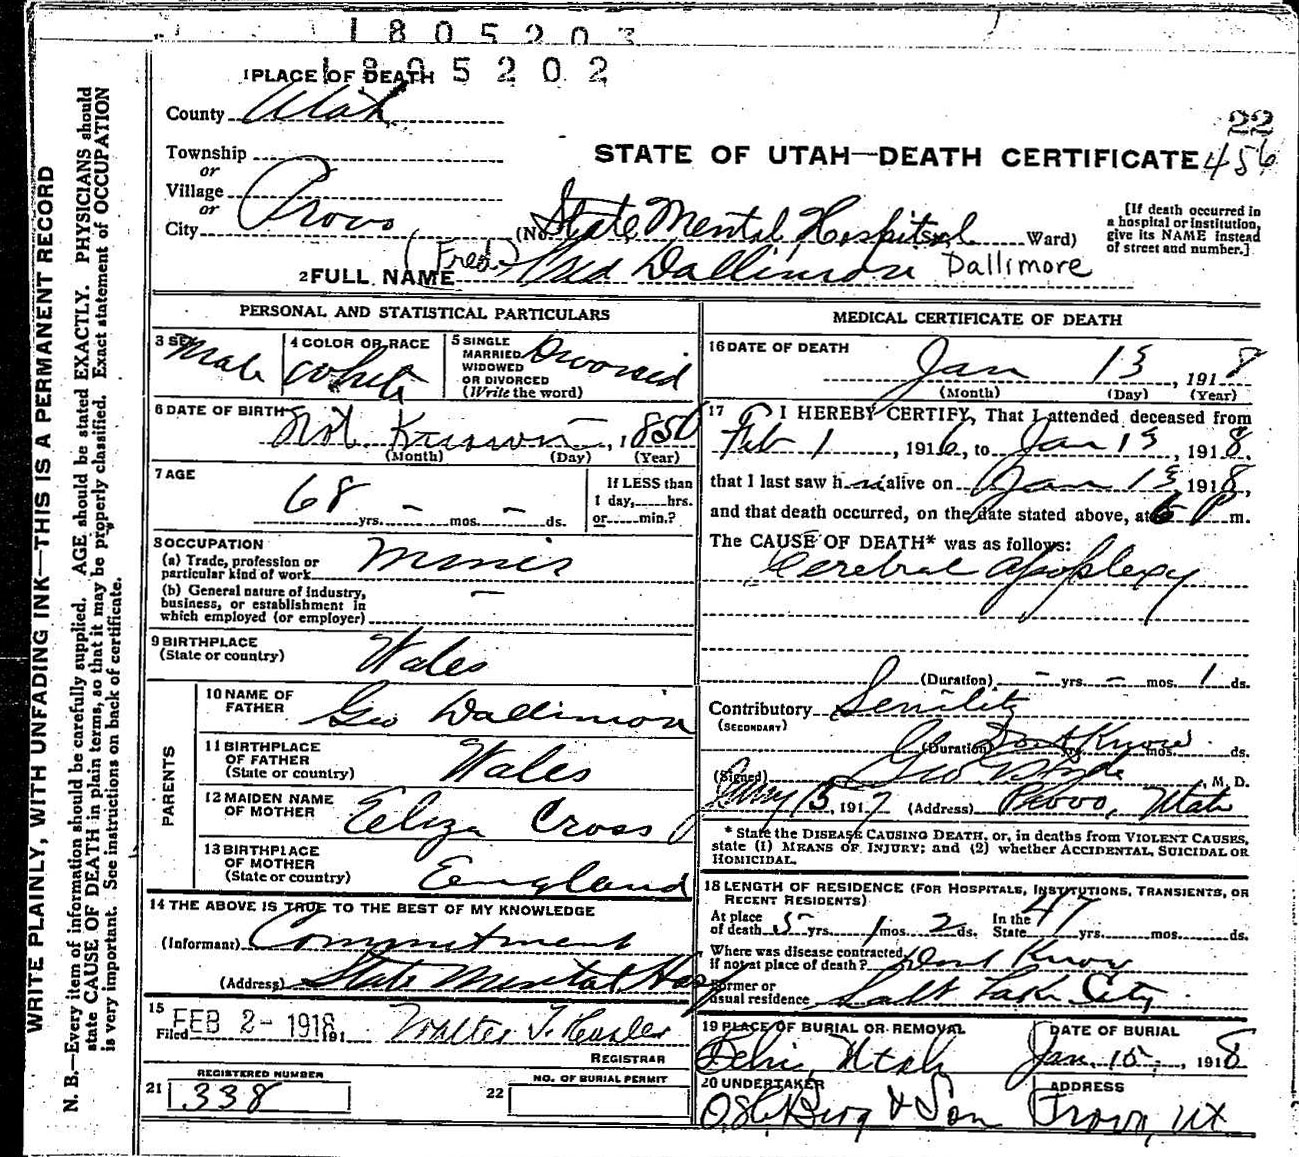 1805203
1805202
1 PLACE OF DEATH
County Utah
22
456
STATE OF UTAH—DEATH CERTIFICATE
Township
or
Village
or
City Provo
(No. State Mental Hospital Ward)
[If death occurred in a hospital or institution, give its NAME instead of street and number.]
2 FULL NAME (Fred) Fred Dallimore Dallimore
PERSONAL AND STATISTICAL PARTICULARS
3 SEX Male
4 COLOR OR RACE White
5 SINGLE MARRIED WIDOWED OR DIVORCED (Write the word) Divorced
6 DATE OF BIRTH Not Known, 1850
(Month) (Day) (Year)
7 AGE 68 yrs. – mos. – ds.
If LESS than 1 day, hrs. or min.?
8 OCCUPATION
(a) Trade, profession or particular kind of work Miner
(b) General nature of industry, business, or establishment in which employed (or employer) –
9 BIRTHPLACE (State or country) Wales
PARENTS
10 NAME OF FATHER Geo Dallimore
11 BIRTHPLACE OF FATHER (State or country) Wales
12 MAIDEN NAME OF MOTHER Eliza Cross
13 BIRTHPLACE OF MOTHER (State or country) England
14 THE ABOVE IS TRUE TO THE BEST OF MY KNOWLEDGE
(Informant) Commitment
(Address) State Mental Hos
15 Filed FEB 2 - 1918 191 Walter T. Hasler
REGISTRAR
21 REGISTERED NUMBER 338
22 NO. OF BURIAL PERMIT
MEDICAL CERTIFICATE OF DEATH
16 DATE OF DEATH Jan 13, 1918
(Month) (Day) (Year)
17 I HEREBY CERTIFY, That I attended deceased from
Feb 1, 1916, to Jan 13, 1918.
that I last saw h im alive on Jan 13 1918,
and that death occurred, on the date stated above, at 6 P m.
The CAUSE OF DEATH* was as follows:
Cerebral apoplexy
(Duration) – yrs. – mos. 1 ds.
Contributory Senility
(SECONDARY)
(Duration) Dont Know mos. ds.
(Signed) Geo Hyde M. D.
Jany 15, 1917 (Address) Provo, Utah
* State the DISEASE CAUSING DEATH, or, in deaths from VIOLENT CAUSES, state (1) MEANS OF INJURY; and (2) whether ACCIDENTAL, SUICIDAL OR HOMICIDAL.
18 LENGTH OF RESIDENCE (FOR HOSPITALS, INSTITUTIONS, TRANSIENTS, OR RECENT RESIDENTS)
At place of death 5 yrs. 1 mos. 2 ds. In the State 47 yrs. mos. ds.
Where was disease contracted, if not at place of death? Dont Know
Former or usual residence Salt Lake City
19 PLACE OF BURIAL OR REMOVAL Utah
DATE OF BURIAL Jan. 15, 1918
20 UNDERTAKER Berg & Son
ADDRESS Provo, Ut
WRITE PLAINLY, WITH UNFADING INK—THIS IS A PERMANENT RECORD
N. B.—Every item of information should be carefully supplied. AGE should be stated EXACTLY. PHYSICIANS should
state CAUSE OF DEATH in plain terms, so that it may be properly classified. Exact statement of OCCUPATION
is very important. See instructions on back of certificate.